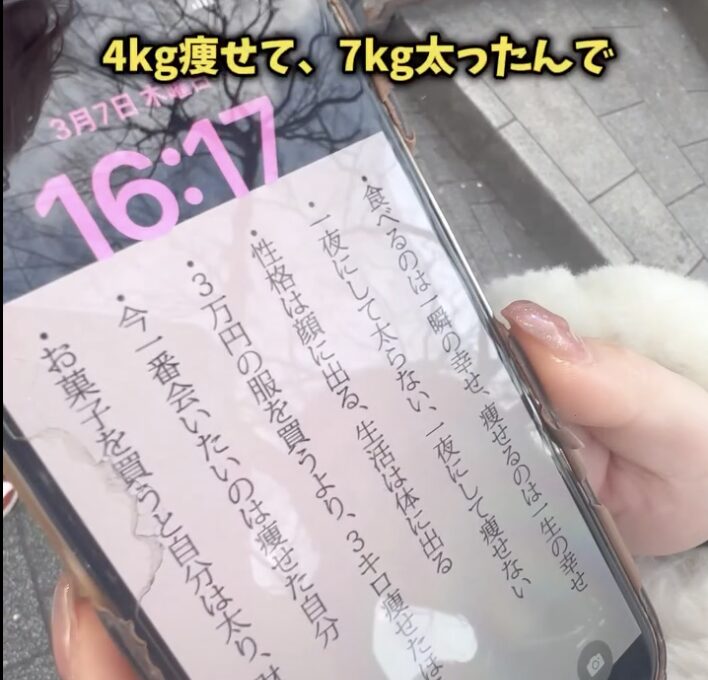 4kg痩せて、7kg太ったんで
3月7日 木曜日
16:17
・食べるのは一瞬の幸せ、痩せるのは一生の幸せ
・一夜にして太らない、一夜にして痩せない
・性格は顔に出る、生活は体に出る
・3万円の服を買うより、3キロ痩せたほ
・今一番会いたいのは痩せた自分
・お菓子を買うと自分は太り、財